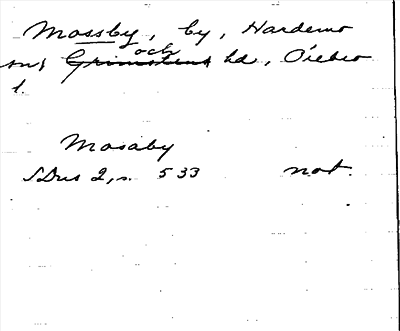 Mossby, by, Hardemo
sn, och hd, Örebro
l.
Mosaby
SDns 2, s. 533 not.